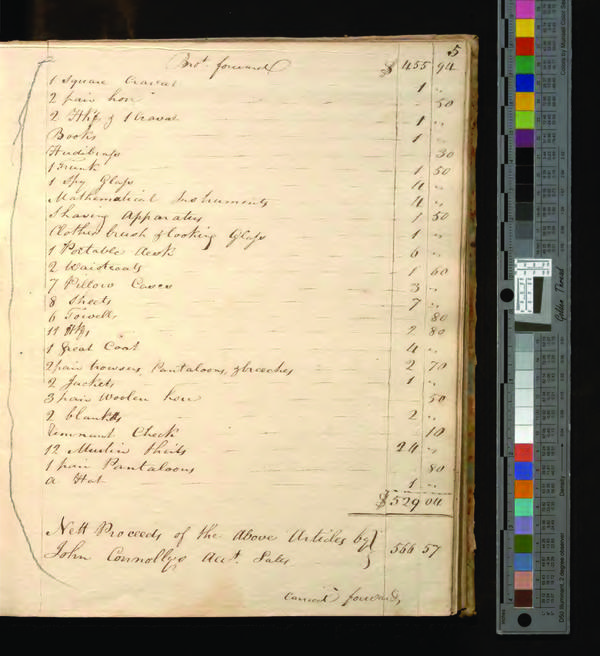 5
Bro.t forward $ 455 94
1 Square Cravat 1 "
2 pair hose 50
2 Hkfs & 1 Cravat 1 "
Books 1 "
Hudibrass 30
1 Trunk 1 50
1 Spy Glass 4 "
Mathematical Instruments 4 "
Shaving Apparatus 1 50
Clothes brush & looking Glass 1 "
1 Portable desk 6 "
2 Waistcoats 1 60
7 Pillow Cases 3 "
8 Sheets 7 "
6 Towells 80
11 Hkfs 2 80
1 Great Coat 4 "
2 pair trowsers, Pantaloons, & breeches 2 70
2 Jackets 1 "
3 pair Woolen hose 50
2 blankets 2 "
Remnant Check 10
12 Muslin Shirts 24 "
1 pair Pantaloons 80
a Hat 1 "
$ 529 04
Nett Proceeds of the Above Articles by
John Connolly's Auct. Sales 566 57
Carried forward,
Golden Thread